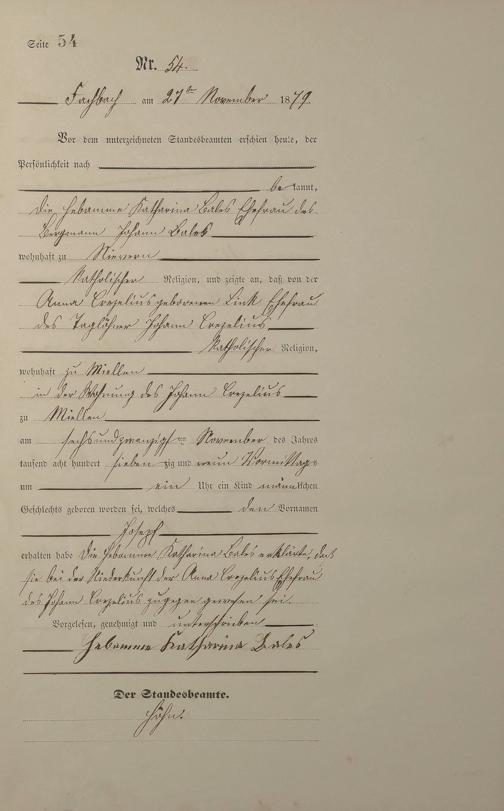 Seite 54
Nr. 54.
Fachbach am 27ten November 1879.
Vor dem unterzeichneten Standesbeamten erschien heute, der
Persönlichkeit nach
be kannt,
die Hebamme Katharina Bales Ehefrau des
Bergmann Johann Bales
wohnhaft zu Nievern
katholischer Religion, und zeigte an, daß von der
Anna Crezelius geborenen Link Ehefrau
des Taglöhner Johann Crezelius
katholischer Religion,
wohnhaft zu Miellen
in der Wohnung des Johann Crezelius
zu Miellen
am sechsundzwanzigsten November des Jahres
tausend acht hundert sieben zig und neun Vormittags
um ein Uhr ein Kind männlichen
Geschlechts geboren worden sei, welches den Vornamen
Joseph
erhalten habe Die Hebamme Katharina Bales erklärte, daß
sie bei der Niederkunft der Anna Crezelius Ehefrau
des Johann Crezelius zugegen gewesen sei.
Vorgelesen, genehmigt und unterschrieben
Hebamme Katharina Bales
Der Standesbeamte.
Höhn.